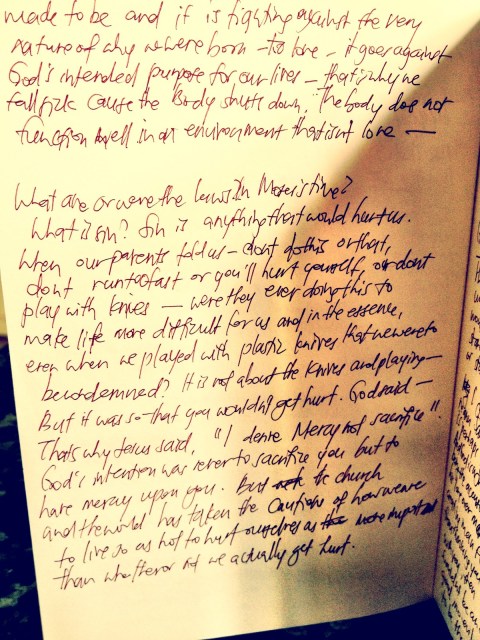 made to be and if is fighting against the very
nature of why we were born - to love - it goes against
God's intended purpose for our lives - that is why we
fall sick cause the Body shuts down. The body does not
function well in an environment that isn't love —
What are or were the laws in Moses's time?
What is sin? Sin is anything that would hurt us.
When our parents told us - dont do this or that,
dont run too fast or you'll hurt yourself, or dont
play with knives — were they ever doing this to
make life more difficult for us and in the essence,
even when we played with plastic knives that we were to
be condemned? It is not about the knives and playing—
But it was so that you wouldn't get hurt. God said —
That's why Jesus said, "I desire Mercy not sacrifice".
God's intention was never to sacrifice you but to
have mercy upon you. But the church
and the world has taken the cautions of how we are
to live so as not to hurt ourselves as more important
than whether or not we actually get hurt.